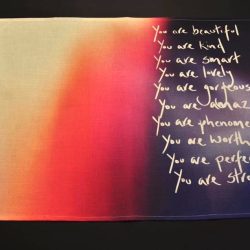 You are beautiful
You are kind
You are smart
You are lovely
You are gorgeous
You are amaz
You are phenome
You are worth
You are perfe
You are stro